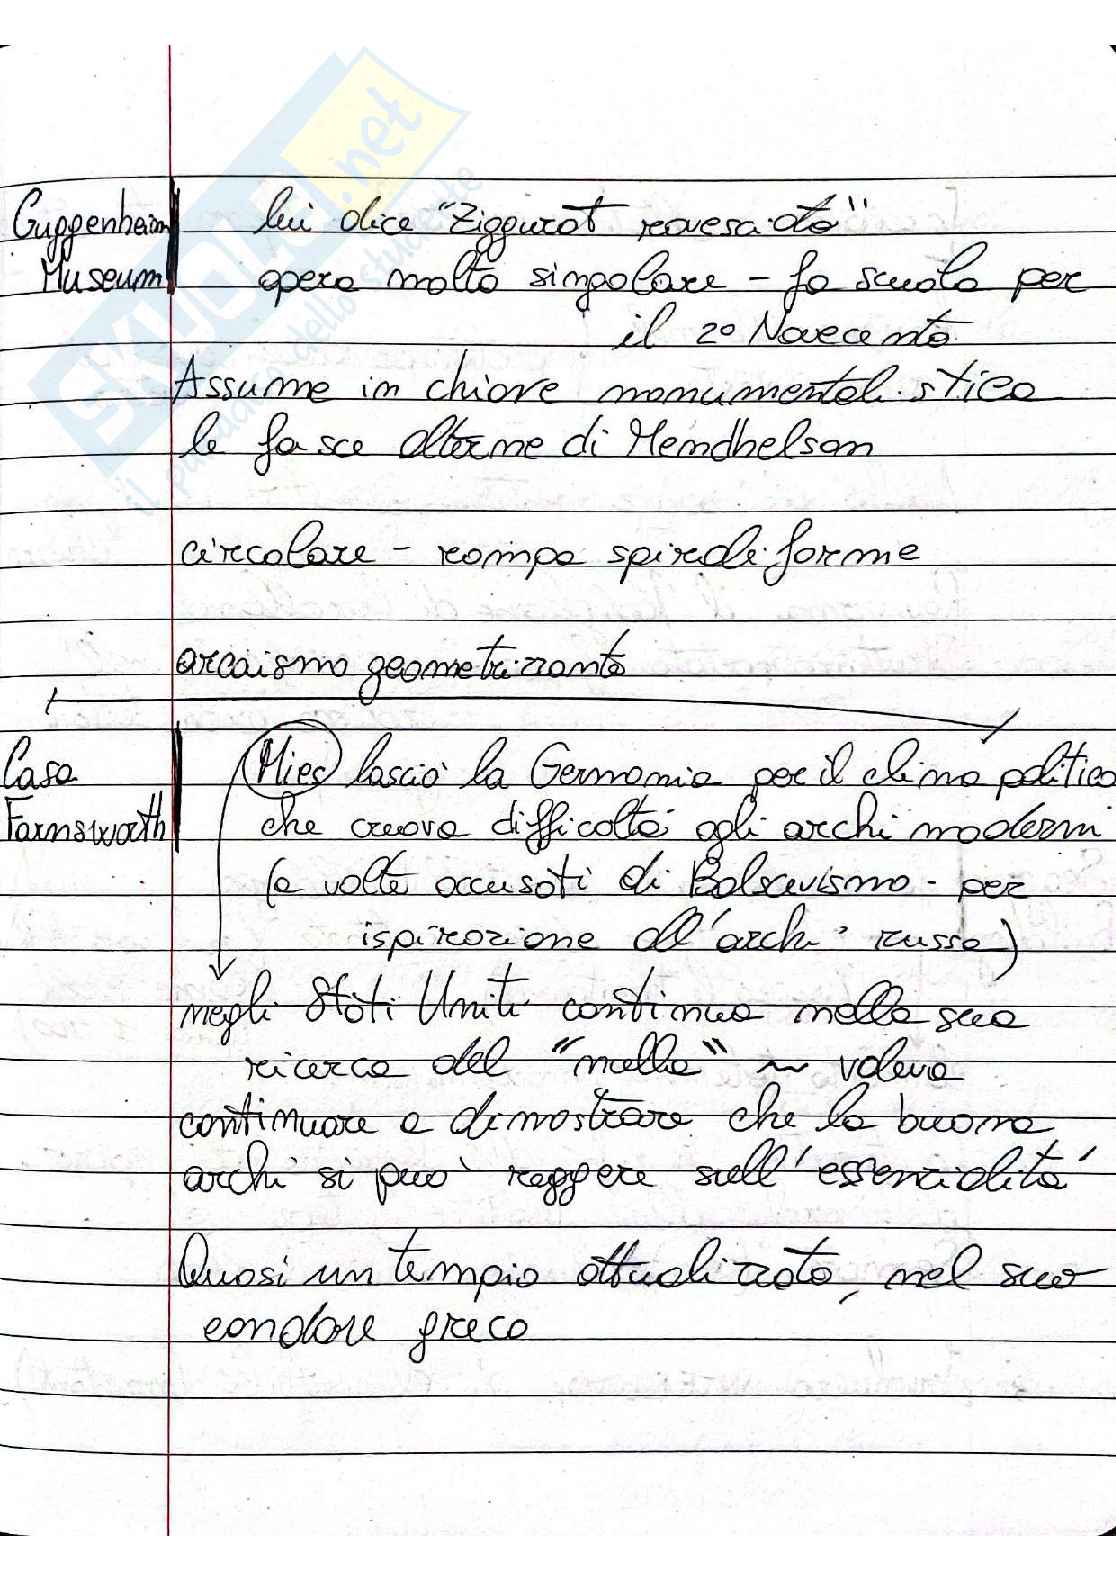 SKUOLA.net
il paradiso dello studente
Guggenheim
Museum
lui dice "Ziggurat rovesciato"
opera molto singolare - fa scuola per
il 2º Novecento
Assume in chiave monumentalistica
le fasce alterne di Mendhelson
circolare - rampa spiraliforme
arcaismo geometrizzante
Casa
Farnsworth
Mies lasciò la Germania per il clima politico
che creava difficoltà agli archi moderni
(a volte accusati di Bolscevismo - per
ispirazione all'archi russa)
negli Stati Uniti continua nella sua
ricerca del "nulla" ~ voleva
continuare a dimostrare che la buona
archi si può reggere sull'essenzialità
Quasi un tempio attualizzato, nel suo
candore greco